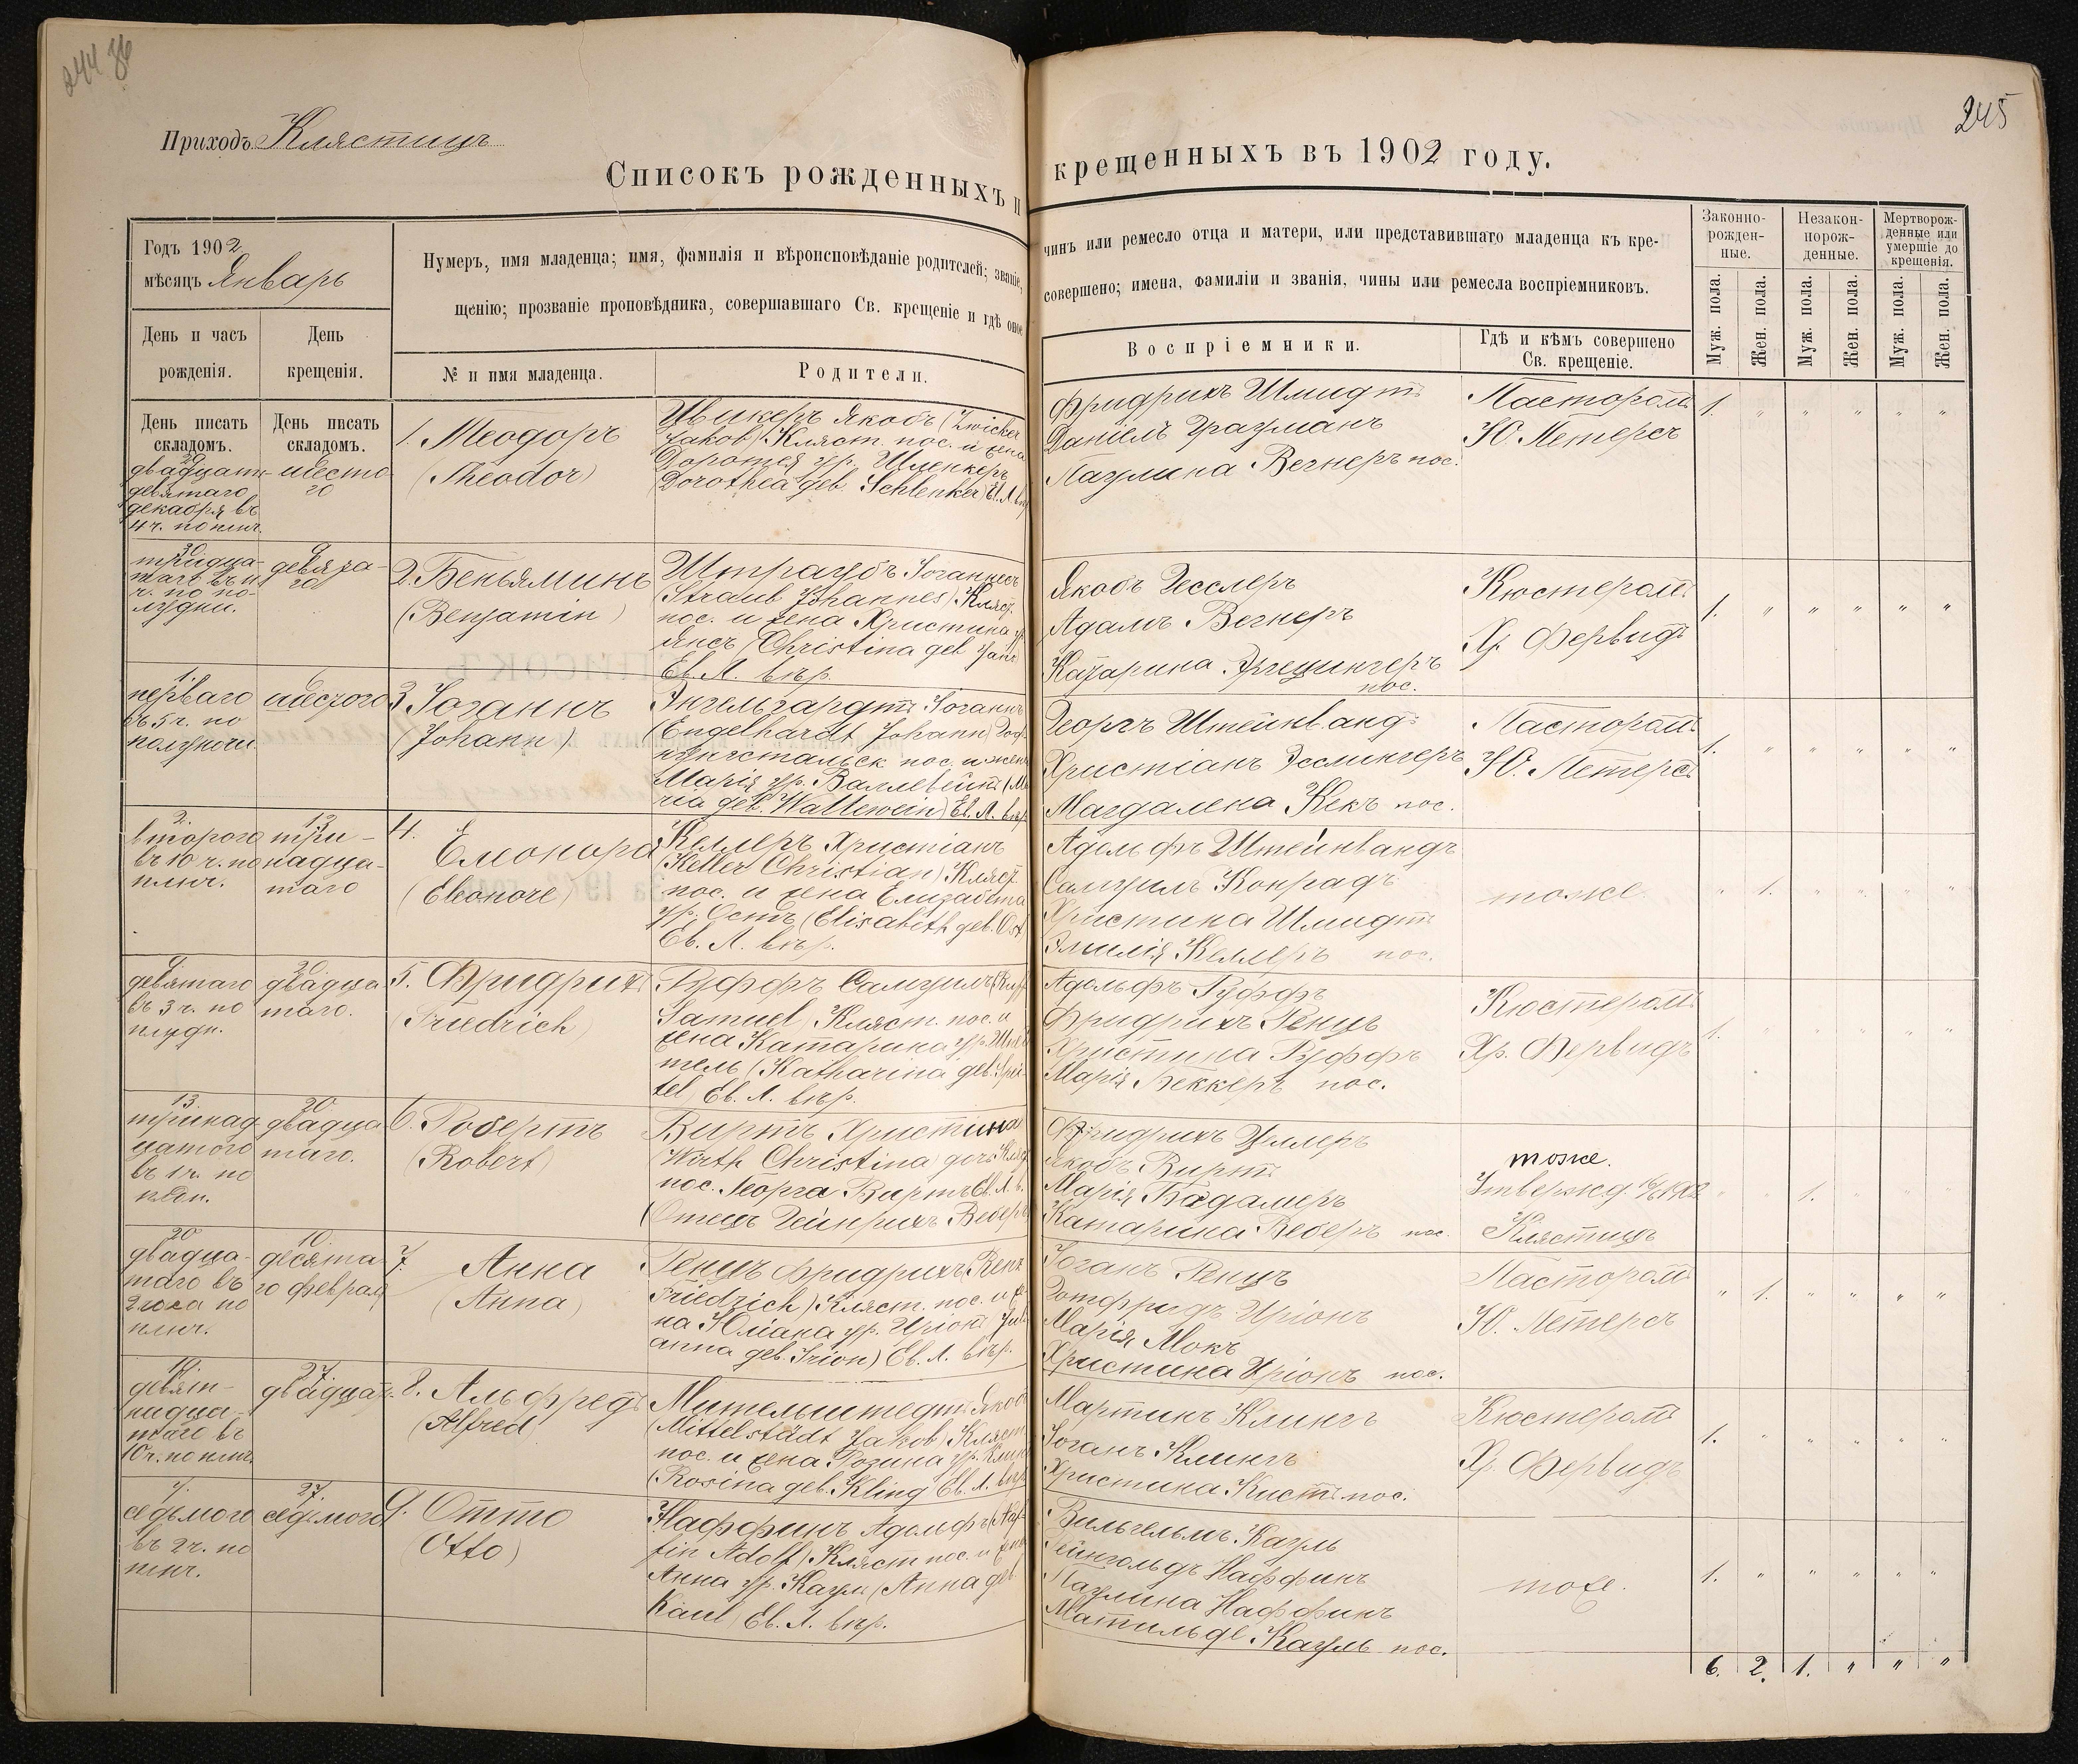 244
245
Приходъ Клястицъ
Списокъ рожденныхъ и крещенныхъ въ 1902 году.
Годъ 1902
мѣсяцъ Январь
День и часъ рожденія.
День крещенія.
Нумеръ, имя младенца; имя, фамилія и вѣроисповѣданіе родителей; званіе, чинъ или ремесло отца и матери, или представившаго младенца къ кре-
щенію; прозваніе проповѣдника, совершавшаго Св. крещеніе и гдѣ оное совершено; имена, фамиліи и званія, чины или ремесла воспріемниковъ.
№ и имя младенца.
Родители.
Воспріемники.
Гдѣ и кѣмъ совершено
Св. крещеніе.
Законно-
рожден-
ные.
Незакон-
норож-
денные.
Мертворож-
денные или
умершіе до
крещенія.
Муж. пола.
Жен. пола.
Муж. пола.
Жен. пола.
Муж. пола.
Жен. пола.
День писать
складомъ.
День писать
складомъ.
29
двадцать
девятаго
декабря въ
4 ч. по плнч.
6
шесто
го
1. Теодоръ
(Theodor)
Цвикеръ Якобъ (Zwicker
Jakob) Кляст. пос. и жена
Доротея ур. Шленкеръ
Dorothea geb. Schlenker) Ев. Л. вѣр
Фридрихъ Шмидтъ
Даніелъ Траутманъ
Паулина Вегнеръ пос.
Пасторомъ
Ю. Петерсъ
1. " " " " "
30.
тридца-
таго въ 11
ч. по по-
лудни.
9
девята-
го
2. Беньяминъ
(Benjamin)
Штраубъ Іоганнесъ
(Straub Johannes) Кляст.
пос. и жена Христина ур.
Янсъ (Christina geb Jans)
Ев. Л. вѣр.
Якобъ Гесслеръ
Адамъ Вегнеръ
Катарина
пос.
Кюстеромъ
Хр. Фервидъ
1. " " " " "
1.
перваго
въ 5 ч. по
полуночи
6
шестого
3 Іоганнъ
(Johann)
Энгельгардтъ Іоганнъ
(Engelhardt Johann)
пос. и жена
Марія ур. Валлевейнъ (Ma
ria geb. Wallewein) Ев. Л. вѣр
Георгъ Штейнвандъ
Христіанъ Эслингеръ
Магдалена Кекъ пос.
Пасторомъ
Ю. Петерсъ
1. " " " " "
2.
второго
въ 10 ч. по
плнч.
13
три-
надца-
таго
4.
Елеонора
(Eleonore)
Келлеръ Христіанъ
(Keller Christian) Кляст.
пос. и жена Елизабета
ур. Остъ (Elisabeth geb. Ost)
Ев. Л. вѣр.
Адольфъ Штейнвандъ
Самуилъ Конрадъ
Христина Шмидтъ
Эмилія Келлеръ пос.
тоже
" 1. " " " "
9
девятаго
въ 3 ч. по
плудн.
20
двадца
таго.
5. Фридрихъ
(Friedrich)
Руффъ Самуилъ (Ruff
Samuel) Кляст. пос. и
жена Катарина ур. Шпей
тель (Katharina geb. Spei-
tel) Ев. Л. вѣр.
Адольфъ Руффъ
Фридрихъ Ренцъ
Христина Руффъ
Марія Беккеръ пос.
Кюстеромъ
Хр. Фервидъ
1. " " " " "
13.
тринад
цатого
въ 1 ч. по
плдн.
20
двадца
таго.
6. Робертъ
(Robert)
Виртъ Христина
(Wirth Christina) дочь Кляст
пос. Георга Виртъ Ев. Л. в.
(Отецъ Гейнрихъ Веберъ)
Фридрихъ Целлеръ
Якобъ Виртъ
Марія Бадамеръ
Катарина Веберъ пос.
тоже.
Утвержд. 1902
Клястицъ
" " 1. " " "
20
двадца-
таго въ
2 часа по
плнч.
10.
десята
го февраля
7.
Анна
(Anna)
Ренцъ Фридрихъ (Renz
Friedrich) Кляст. пос. и же-
на Юліана ур. Иріонъ (Juli
anna geb. Irion) Ев. Л. вѣр.
Іоганъ Ренцъ
Готфридъ Иріонъ
Марія Мокъ
Христина Иріонъ пос.
Пасторомъ
Ю. Петерсъ
" 1. " " " "
19.
девят-
надца-
таго въ
10 ч. по плнч.
27
двадцать.
8. Альфредъ
(Alfred)
Мительштедтъ Якобъ
(Mittelstädt Jakob) Кляст
пос. и жена Розина ур. Клингъ
(Rosina geb. Kling) Ев. Л. вѣр
Мартинъ Клингъ
Іоганъ Клингъ
Христина Кистъ пос.
Кюстеромъ
Хр. Фервидъ
1. " " " " "
7.
седьмого
въ 2 ч. по
плнч.
27.
седьмого
9. Отто
(Otto)
Наффинъ Адольфъ (Naf-
fin Adolf) Кляст пос. и жена
Анна ур. Кауль (Anna geb.
Kaul) Ев. Л. вѣр.
Вильгельмъ Кауль
Рейнгольдъ Наффинъ
Паулина Наффинъ
Матильде Кауль пос.
тоже.
1. " " " " "
6. 2. 1. " " "